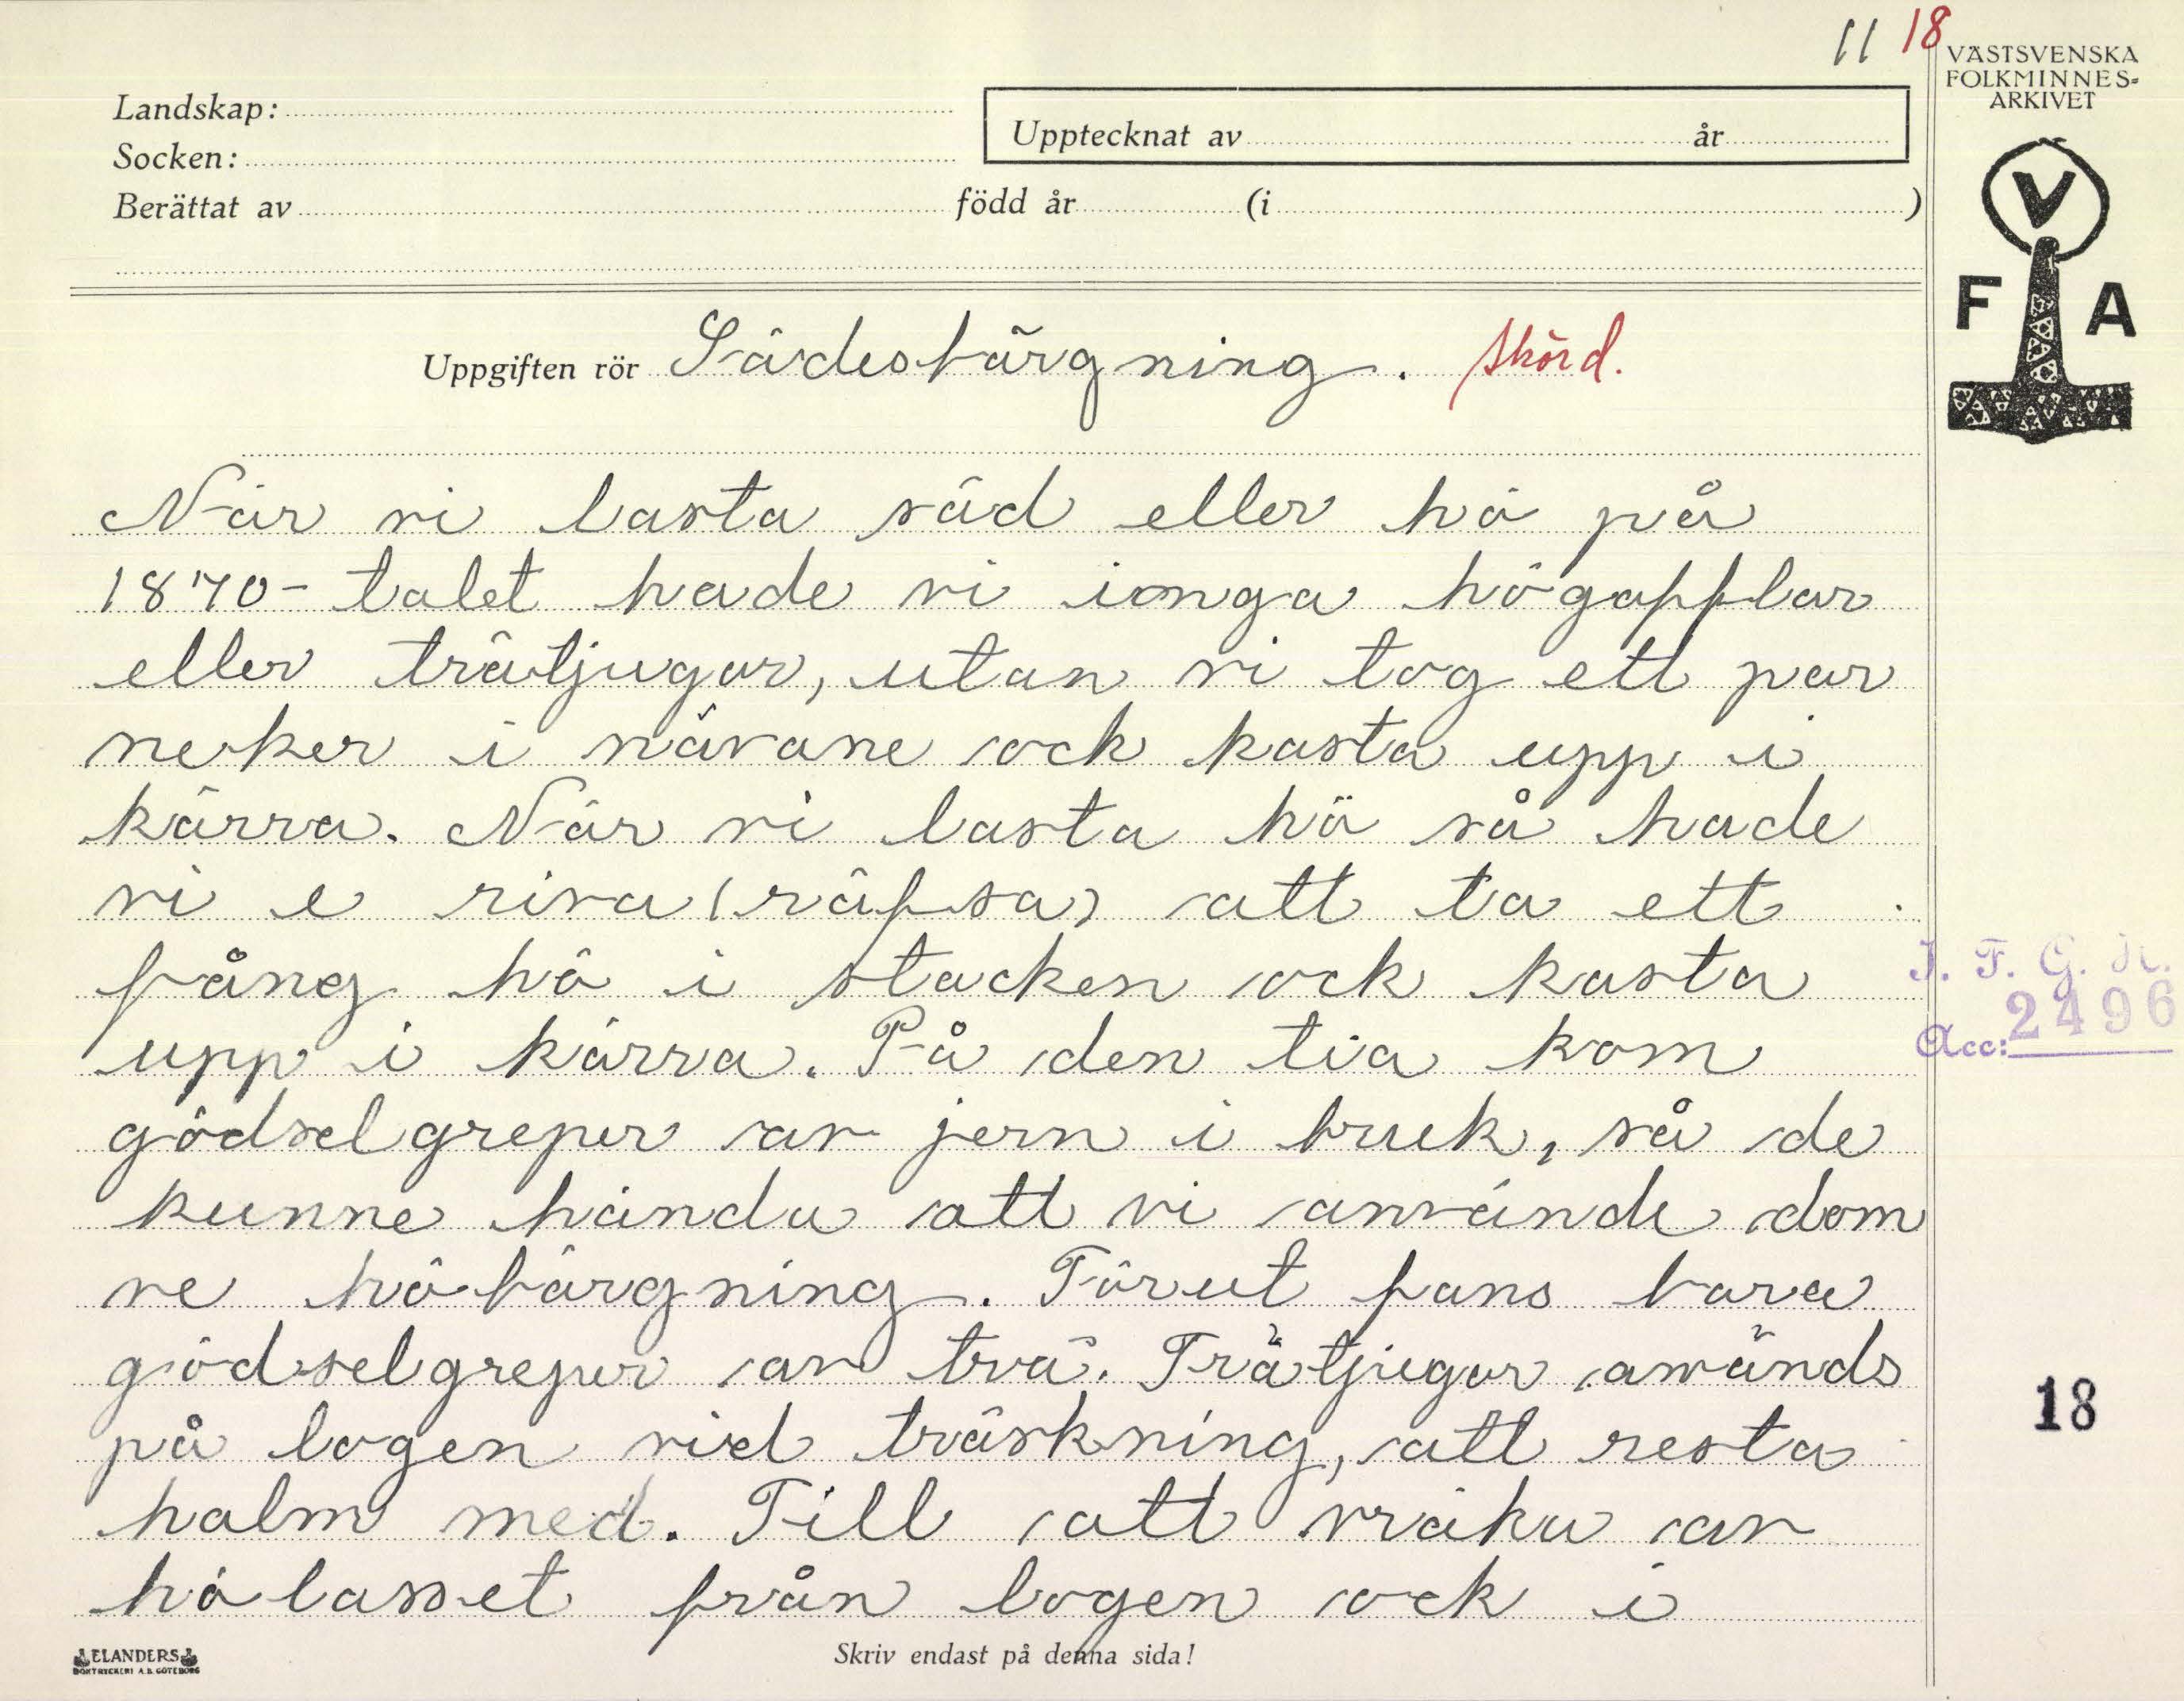 11 18
VÄSTSVENSKA
FOLKMINNES-
ARKIVET
Landskap:
Upptecknat av år
Socken:
Berättat av född år (i )
V
F A
Uppgiften rör Sädesbärgning. Skörd.
När vi lasta säd eller hö på
1870-talet hade vi ionga högafflar
eller trätjugor, utan vi tog ett par
neker i nävane ock kasta upp i
kärra. När vi lasta hö så hade
vi e riva (räfsa) att ta ett
fång hö i stacken ock kasta
upp i kärra. På den tia kom
gödselgreper av jern i bruk, så de
kunne hända att vi använde dom
ve höbärgning. Förut fans bara
gödselgreper av trä. Trätjugor används
på logen vid träskning, att resta
halm med. Till att vräka av
hölasset från logen ock i
J. F. G. H.
Acc: 2496
18
ELANDERS
BOKTRYCKERI A.B. GÖTEBORG
Skriv endast på denna sida!